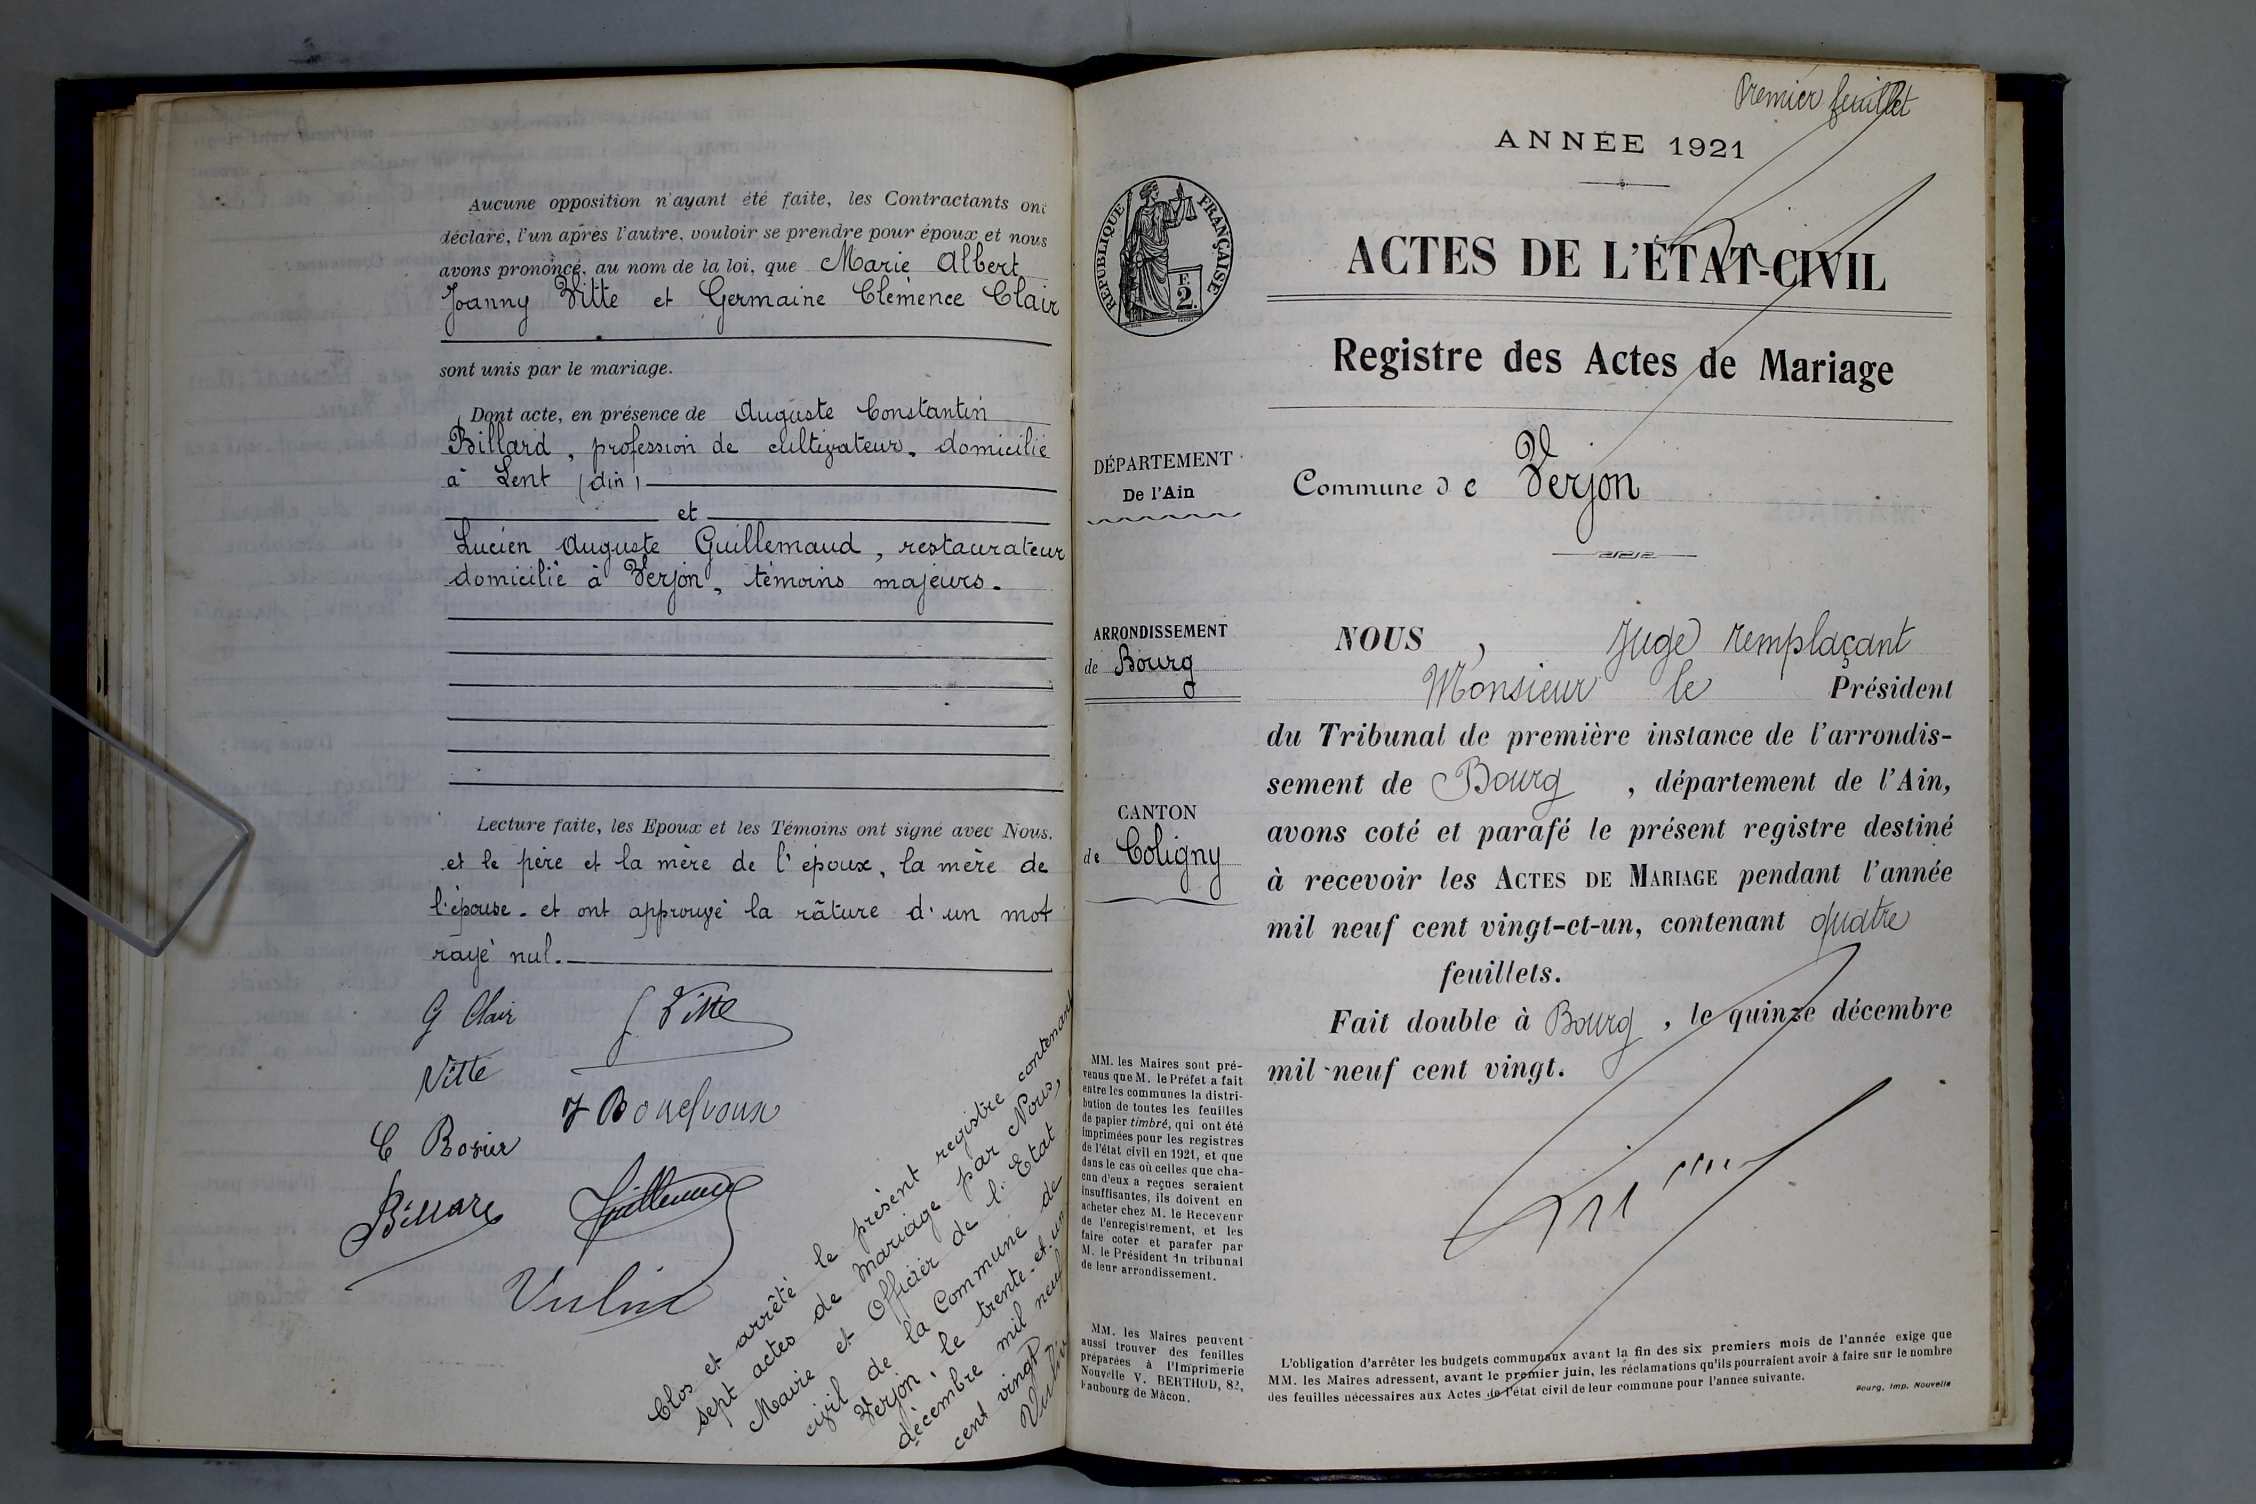 Aucune opposition n'ayant été faite, les Contractants ont
déclaré, l'un après l'autre, vouloir se prendre pour époux et nous
avons prononcé, au nom de la loi, que Marie Albert
Joanny Vitte et Germaine Clémence Clair
sont unis par le mariage.
Dont acte, en présence de Auguste Constantin
Billard, profession de cultivateur, domicilié
à Lent (Ain)
et
Lucien Auguste Guillemaud, restaurateur
domicilié à Verjon, témoins majeurs.
Lecture faite, les Epoux et les Témoins ont signé avec Nous.
et le père et la mère de l'époux, la mère de
l'épouse. et ont approuvé la râture d'un mot
rayé nul.
G Clair
J Vitte
Vitte
C Rosier
Billard
Vulin
Clos et arrêté le présent registre contenant
sept actes de Mariage par Nous,
Maire et Officier de l'Etat
civil de la Commune de
Verjon, le trente-et-un
décembre mil neuf
cent vingt
Premier feuillet
ANNÉE 1921
RÉPUBLIQUE FRANÇAISE
E
2.
ACTES DE L'ÉTAT-CIVIL
Registre des Actes de Mariage
DÉPARTEMENT
De l'Ain
Commune de Verjon
ARRONDISSEMENT
de Bourg
CANTON
de Coligny
NOUS, Juge remplaçant
Monsieur le Président
du Tribunal de première instance de l'arrondis-
sement de Bourg, département de l'Ain,
avons coté et parafé le présent registre destiné
à recevoir les ACTES DE MARIAGE pendant l'année
mil neuf cent vingt-et-un, contenant quatre
feuillets.
Fait double à Bourg, le quinze décembre
mil neuf cent vingt.
MM. les Maires sont pré-
venus que M. le Préfet a fait
entre les communes la distri-
bution de toutes les feuilles
de papier timbré, qui ont été
imprimées pour les registres
de l'état civil en 1921, et que
dans le cas où celles que cha-
cun d'eux a reçues seraient
insuffisantes, ils doivent en
acheter chez M. le Receveur
de l'enregistrement, et les
faire coter et parafer par
M. le Président du tribunal
de leur arrondissement.
MM. les Maires peuvent
aussi trouver des feuilles
préparées à l'Imprimerie
Nouvelle V. BERTHOD, 82,
Faubourg de Mâcon.
L'obligation d'arrêter les budgets communaux avant la fin des six premiers mois de l'année exige que
MM. les Maires adressent, avant le premier juin, les réclamations qu'ils pourraient avoir à faire sur le nombre
des feuilles nécessaires aux Actes de l'état civil de leur commune pour l'année suivante.
Bourg, Imp. Nouvelle